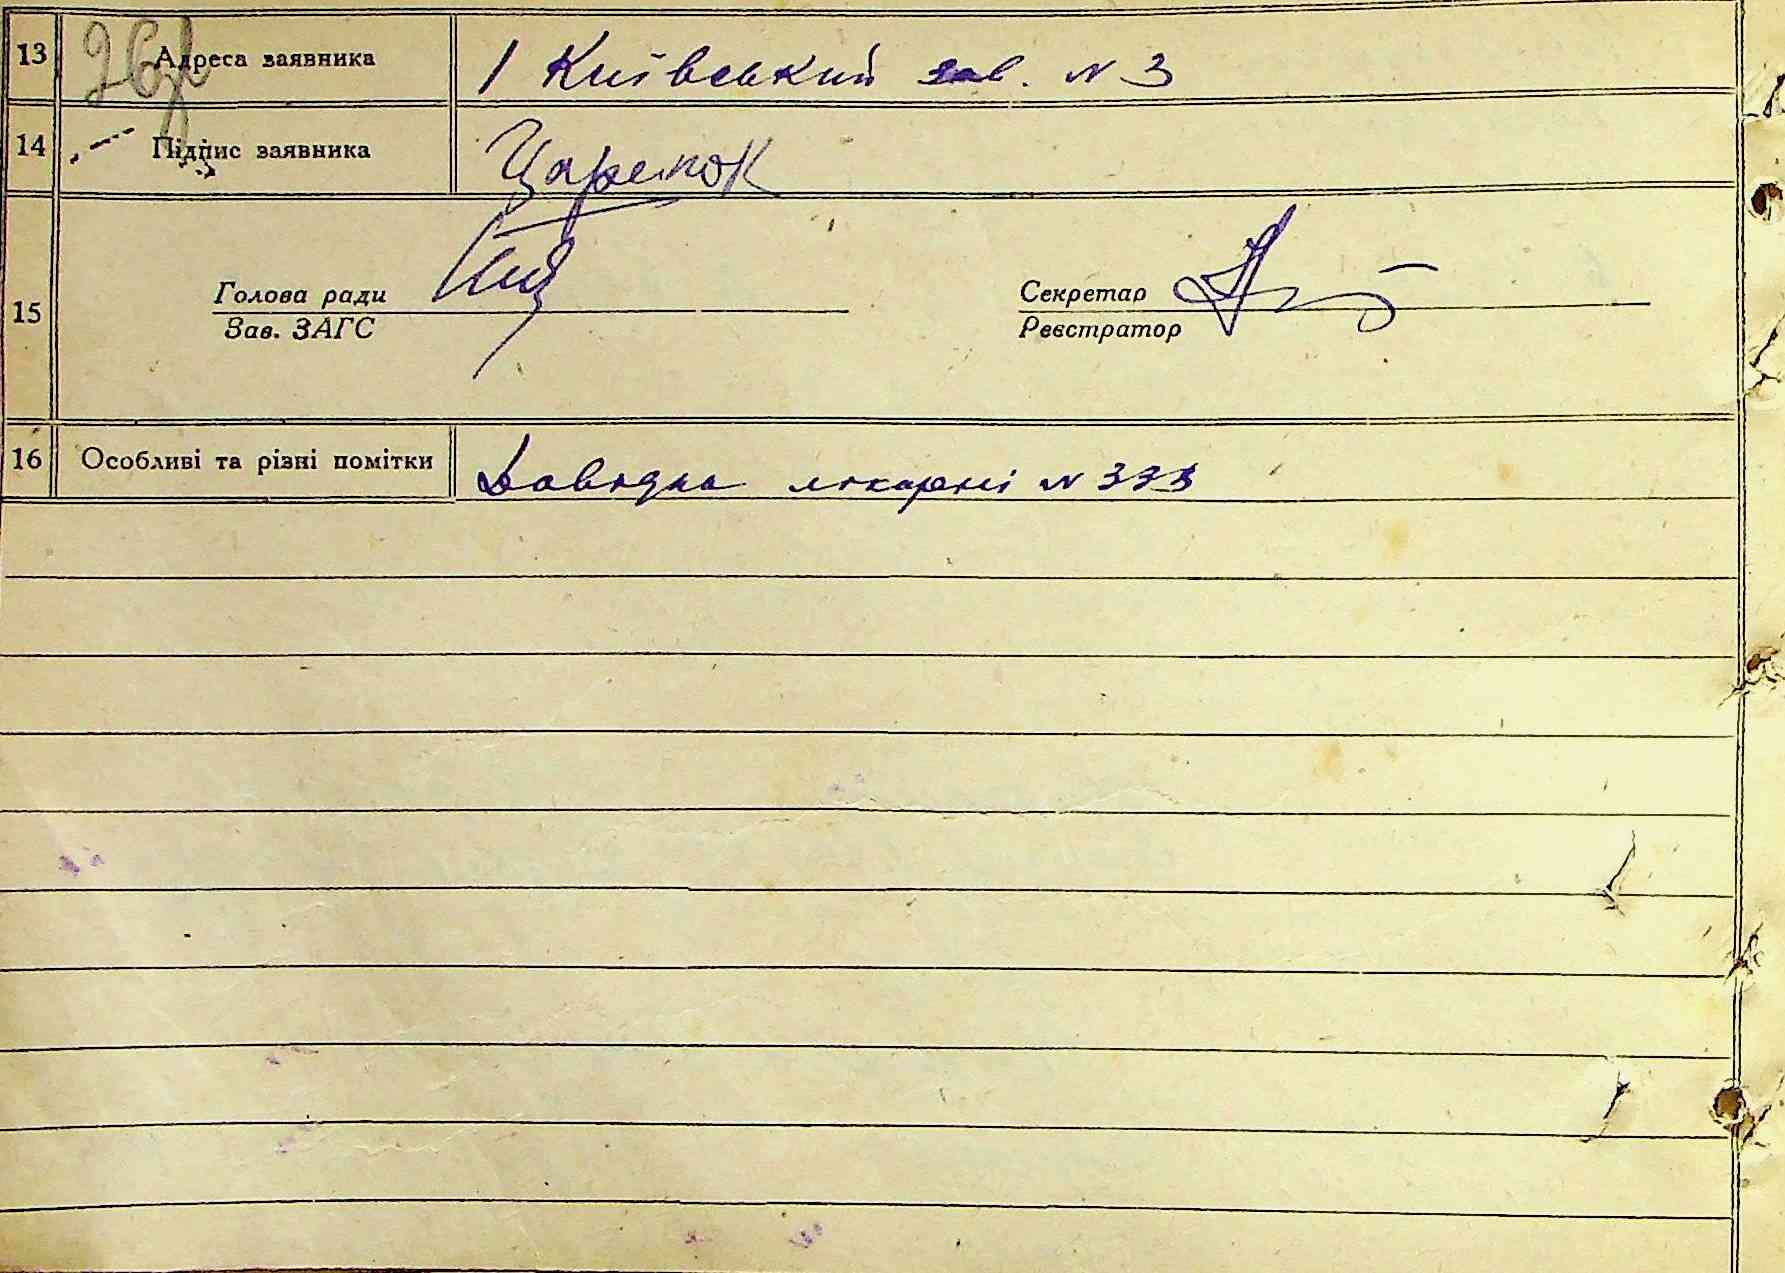 13 Адреса заявника І Київський зав. N 3
14 Підпис заявника Царенок
Голова ради Секретар
15
Зав. ЗАГС Реєстратор
16 Особливі та різні помітки Довідка лікарні N 333